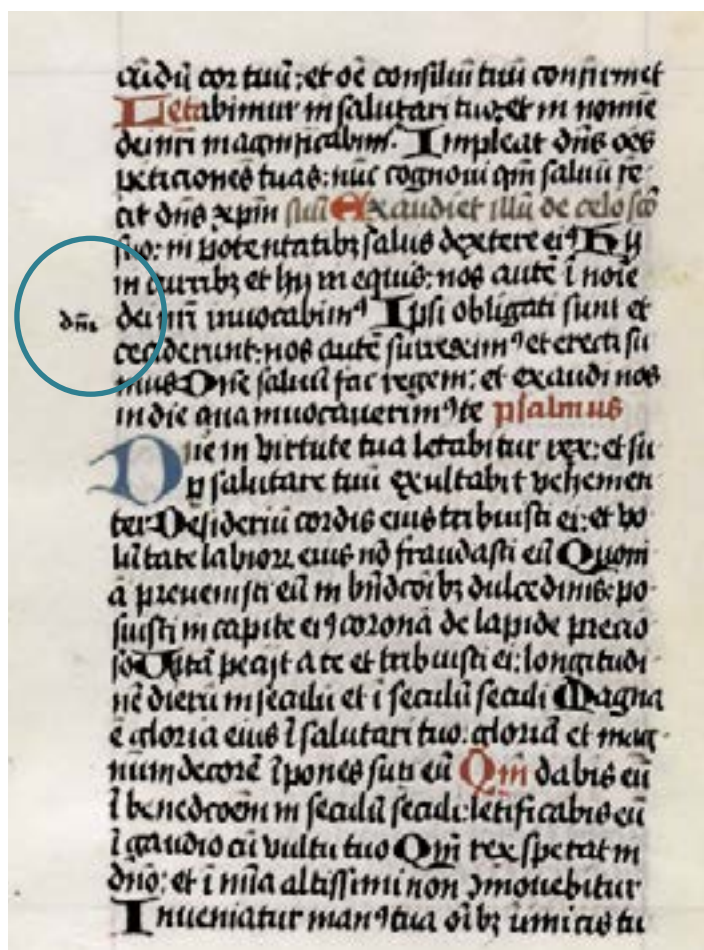 cūdū cor tuū; et oē consiliū tuū confirmet
Letabimur in salutari tuo: et in nomie
dei nr̄i magnificabim᷒. Impleat dn̄s oēs
peticiones tuas: nūc cognoui qm̄ saluū fe
cit dn̄s xpm̄ suū Exaudiet illū de celo sc̄o
suo: in potentatibꝫ salus dextere eiꝰ Hij
in curribꝫ et hij in equis: nos autē ī noīe
dn̄i dei nr̄i inuocabimꝰ Ipsi obligati sunt et
ceciderunt: nos autē surreximꝰ et erecti su
mus Dn̄e saluū fac regem: et exaudi nos
in die qua inuocauerimꝰ te psalmus
Dn̄e in virtute tua letabitur rex: et su
p̱ salutare tuū exultabit vehemen
ter Desideriū cordis eius tribuisti ei: et vo
lūtate labioꝝ eius nō fraudasti eū Quoni
ā preuenisti eū in bn̄dcōibꝫ dulcedinis: po
suisti in capite eiꝰ coronā de lapide precio
so Uitā petijt a te et tribuisti ei: longitudi
nē dierū in seculū et ī seculū seculi Magna
ē gloria eius ī salutari tuo: gloriā et mag
num decorē īpones sup̱ eū Qm̄ dabis eū
ī benedcōem in seculū seculi: letificabis eū
ī gaudio cū vultu tuo Qm̄ rex sperat in
dn̄o: et ī mīa altissimi non ꝯmouebitur
Inueniatur manꝰ tua oībꝫ inimicis tu